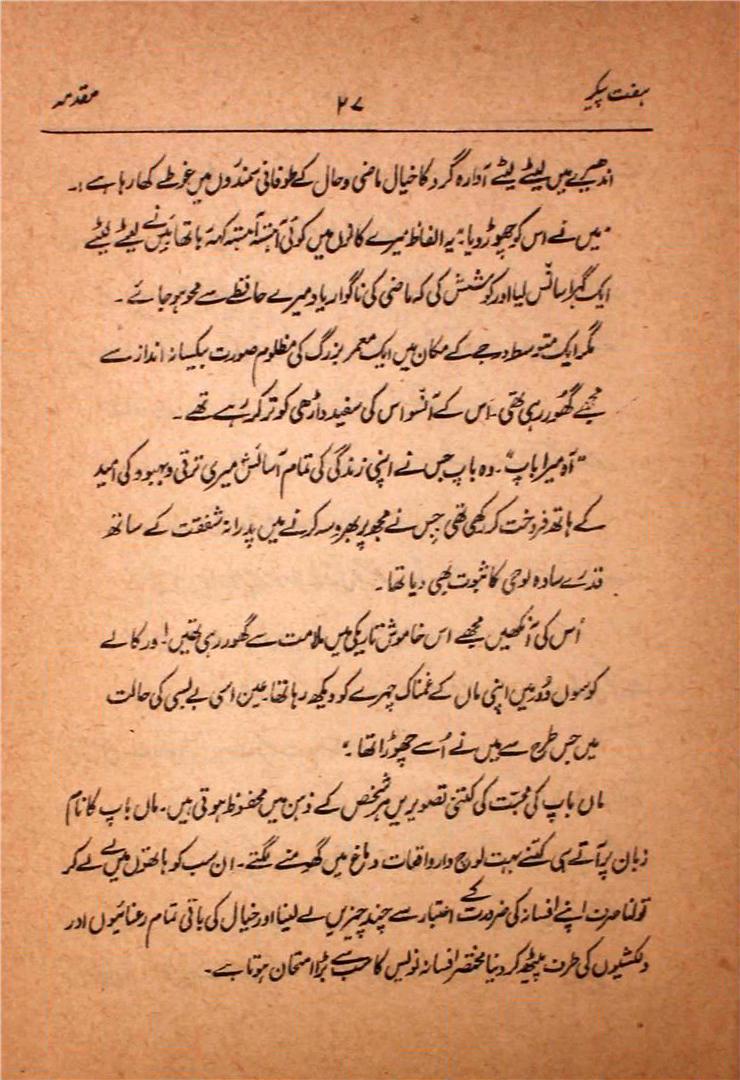 ہفت پیکر ۲۷ مقدمہ
اندھیرے میں لیٹے لیٹے آوارہ گرد کا خیال ماضی و حال کے طوفانی سمندروں میں غوطے کھا رہا ہے :۔
"میں نے اس کو چھوڑ دیا" یہ الفاظ میرے کانوں میں کوئی آہستہ آہستہ کہہ رہا تھا میں نے لیٹے لیٹے
ایک گہرا سانس لیا اور کوشش کی کہ ماضی کی ناگوار یاد میرے حافظے سے محو ہو جائے ۔
مگر ایک متوسط درجے کے مکان میں ایک معمر بزرگ کی مظلوم صورت بیکسانہ انداز سے
مجھے گھور رہی تھی ۔ اس کے آنسو اس کی سفید داڑھی کو تر کر رہے تھے ۔
"آہ میرا باپ" ۔ وہ باپ جس نے اپنی زندگی کی تمام آسائش میری ترقی و بہبود کی امید
کے ہاتھ فروخت کر رکھی تھی جس نے مجھ پر بھروسہ کرنے میں پدرانہ شفقت کے ساتھ
قدرے سادہ لوحی کا ثبوت بھی دیا تھا ۔
اُس کی آنکھیں مجھے اس خاموش تاریکی میں ملامت سے گھور رہی تھیں! اور کالے
کوسوں دُور میں اپنی ماں کے غمناک چہرے کو دیکھ رہا تھا ۔ عین اسی بے بسی کی حالت
میں جس طرح سے میں نے اُسے چھوڑا تھا ۔"
ماں باپ کی محبّت کی کتنی تصویریں ہر شخص کے ذہن میں محفوظ ہوتی ہیں ۔ ماں باپ کا نام
زبان پر آتے ہی کتنے بہت لوچ دار واقعات دماغ میں گھومنے لگتے ۔ ان سب کو ہاتھوں میں لے لے کر
تولنا صرف اپنے افسانہ کی ضرورت کے اعتبار سے چند چیزیں لے لینا اور خیال کی باقی تمام رعنائیوں اور
دلکشیوں کی طرف پیٹھ کر دینا مختصر افسانہ نویس کا سب سے بڑا امتحان ہوتا ہے ۔